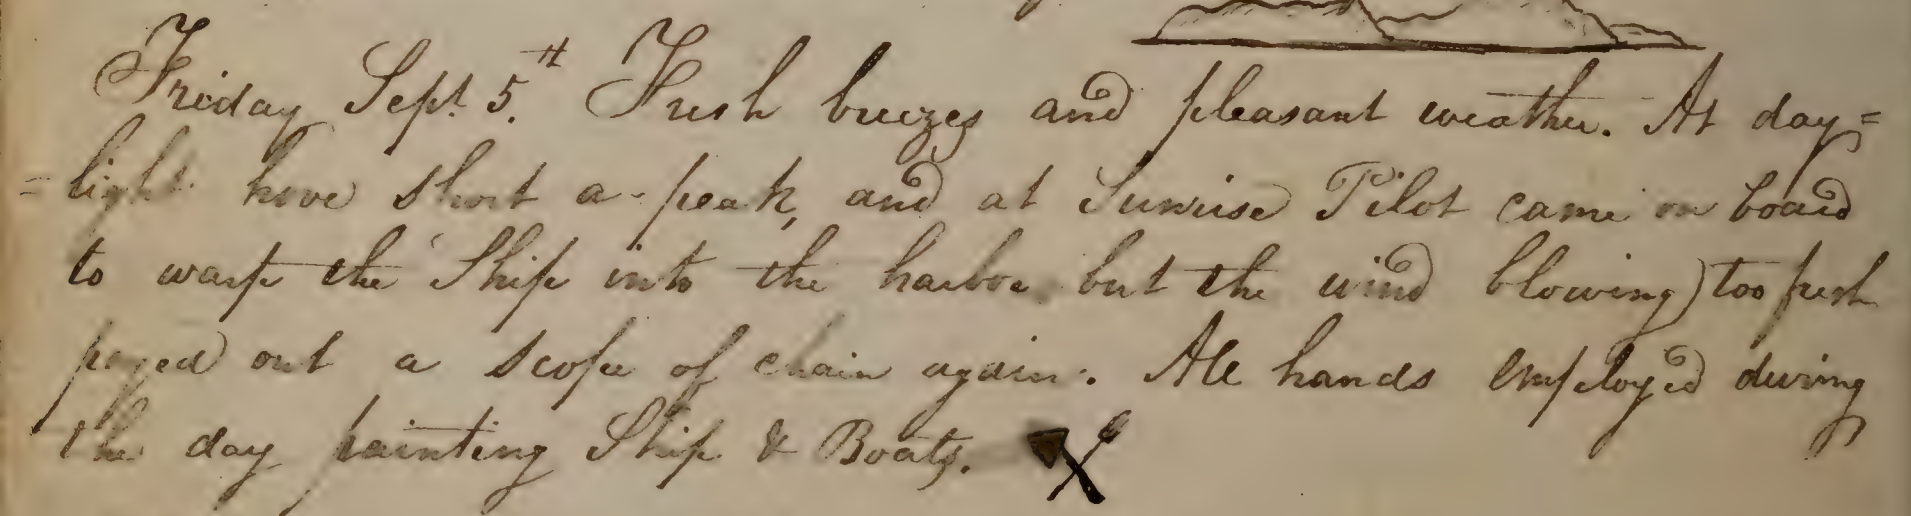 Friday Sept. 5.th Fresh breezes and pleasant weather. At day=
=light hove short a-peak, and at Sunrise Pilot came on board
to warp the Ship into the harbor but the wind blowing too fresh
payed out a scope of chain again. All hands employed during
the day painting Ship & Boats.